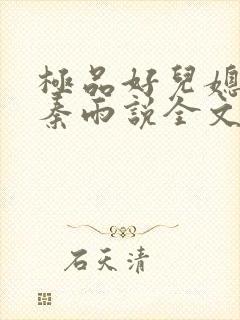 極品好兒媳
秦雨說全文
石天清